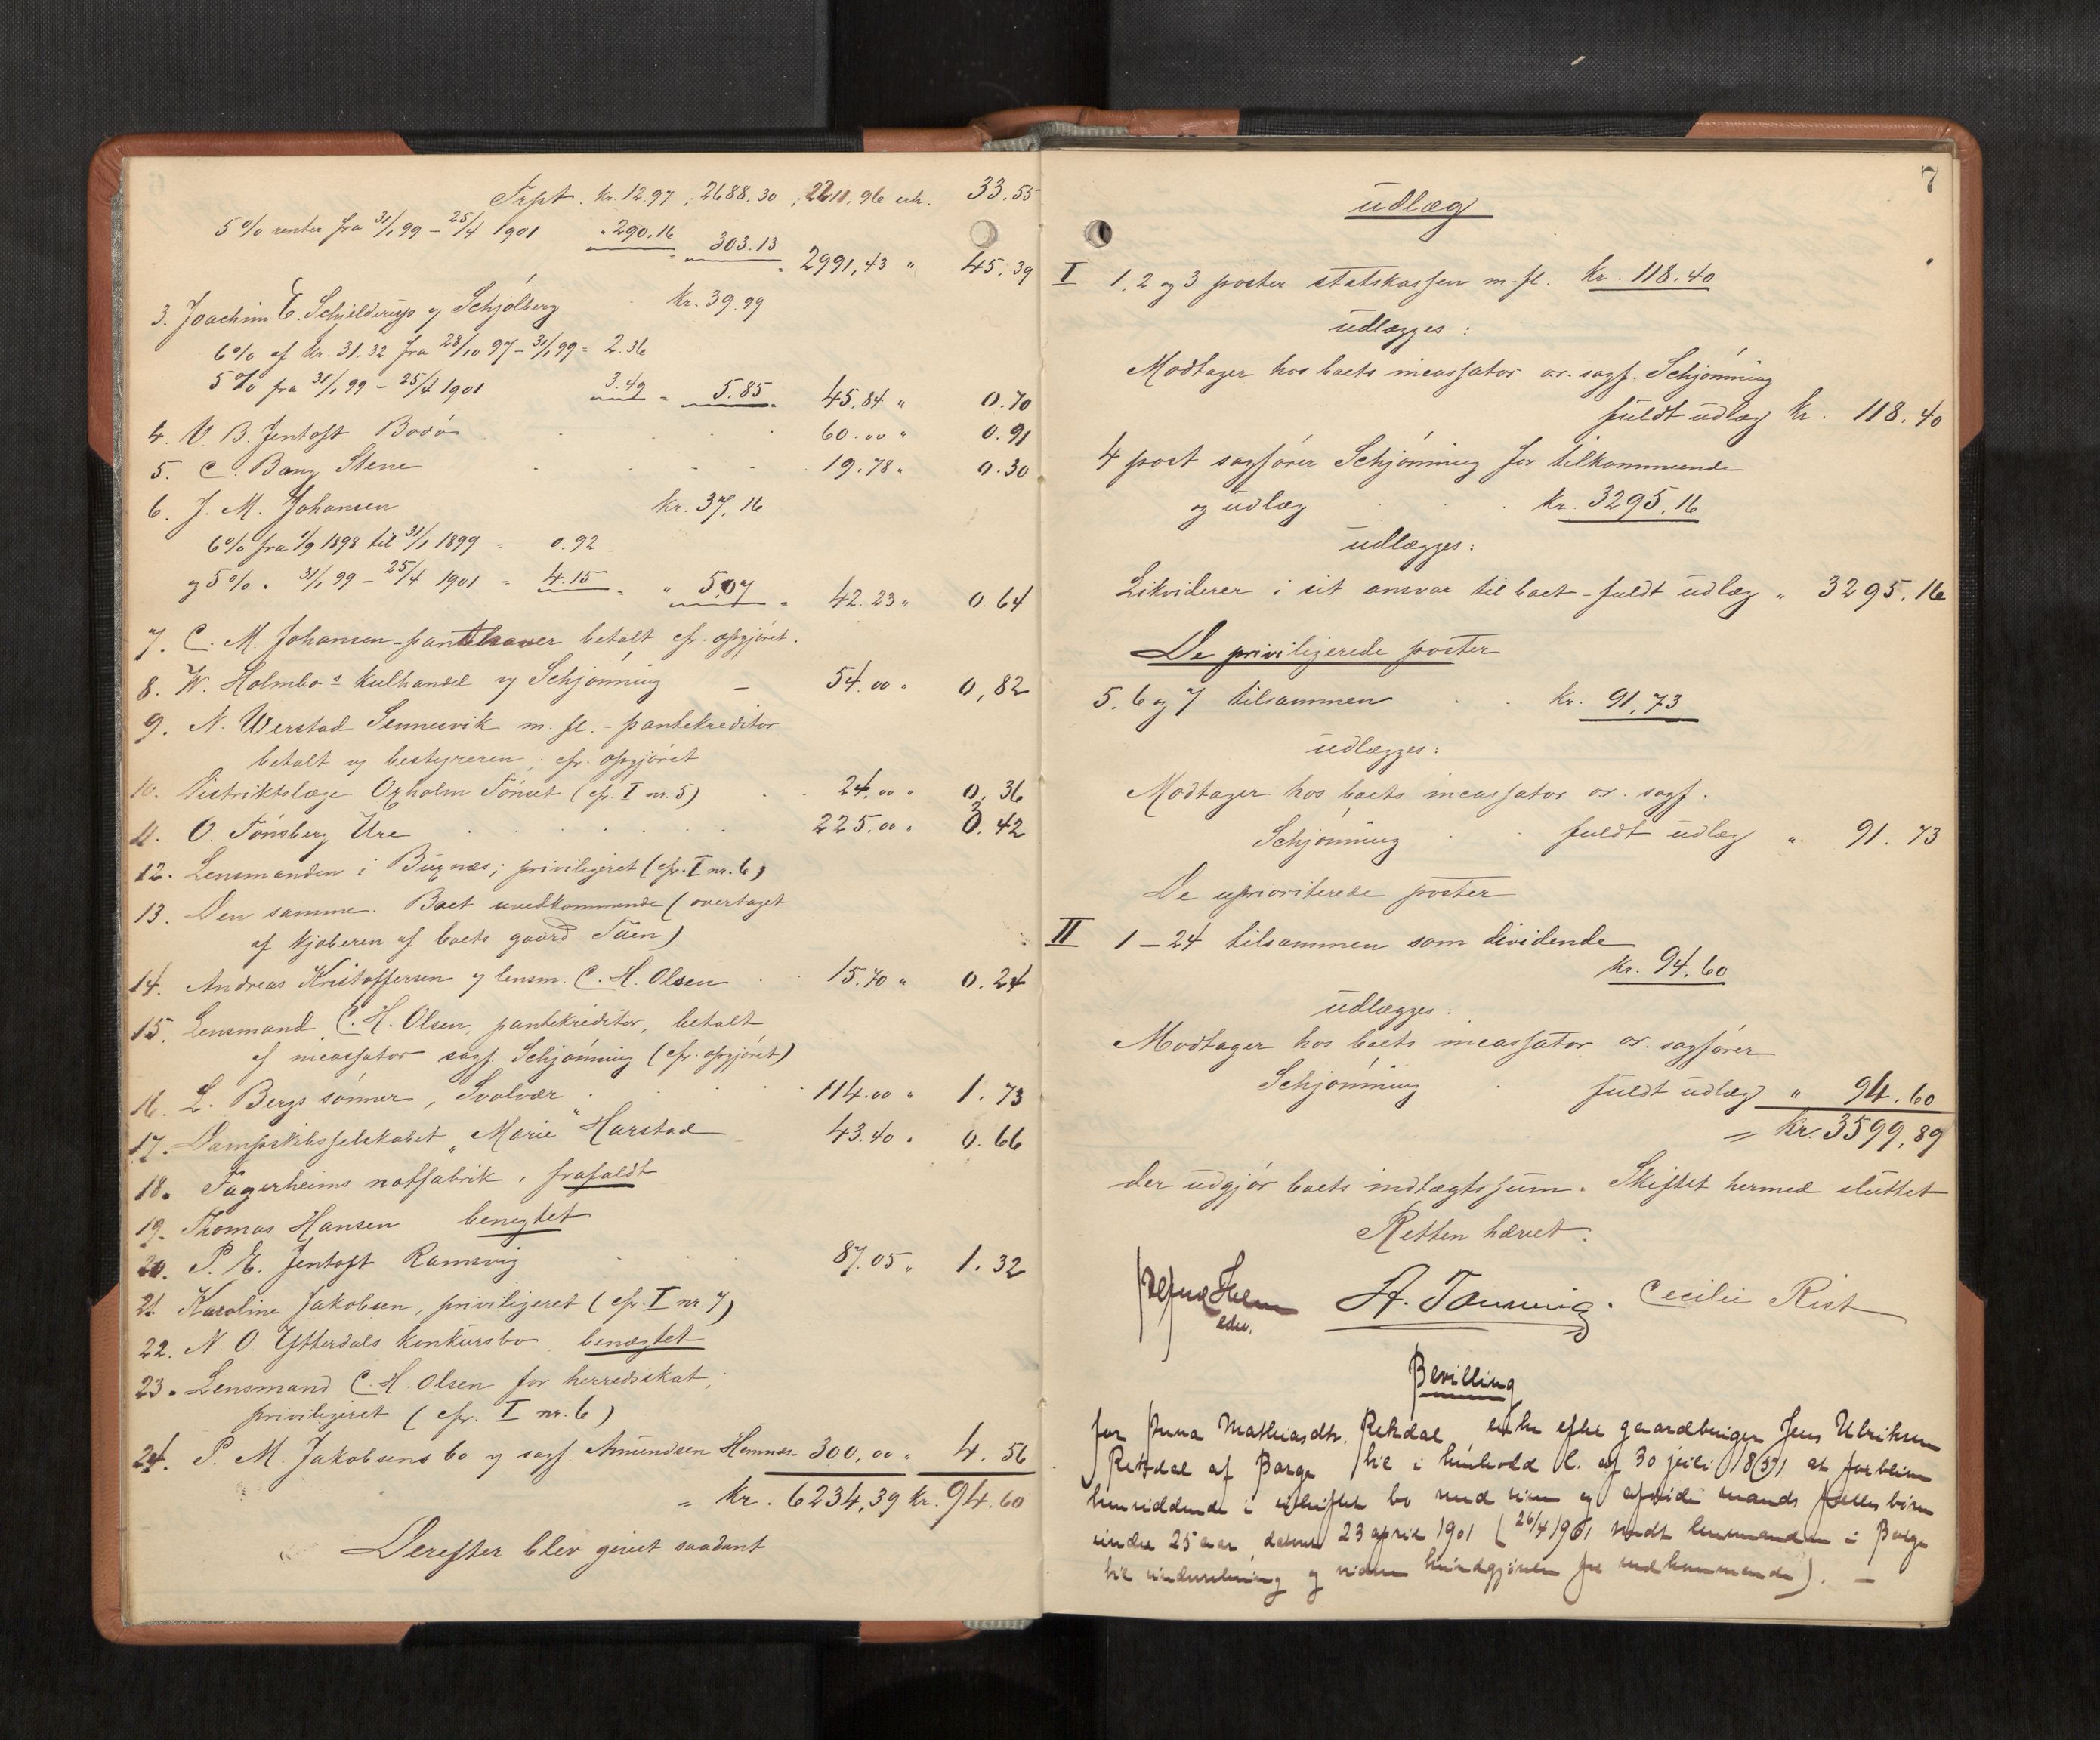 Trpt. Kr. 12.97, 2688.30, 2211.96 uh. 33.55
5% renter fra 31/1 99 – 25/4 1901 " 290.16 = 303.13 = 2991,43 " 45.39
3. Joachim E. Schjelderup v/ Schjølberg Kr. 39.99
6% af kr. 31.32 fra 28/10 97 – 31/1 99 = 2.36
5% fra 31/1 99 – 25/4 1901 3.49 = 5.85 = 45.84 " 0.70
4. V. B. Jentoft Bodø 60.00 " 0.91
5. C. Bang Stene 19.78 " 0.30
6. J. M. Johansen kr. 37.16
6% fra 1/9 1898 til 31/1 1899 = 0.92
og 5% " 31/1 99 – 25/4 1901 = 4.15 = " 5.07 = 42.23 " 0.64
7. C. M. Johansen – panthaver betalt cfr. opgjøret.
8. W. Holmbo's kulhandel v/ Schjønning – 54.00 " 0,82
9. N. Werstad Sennesvik m. fl. – pantekreditor
betalt ved bestyreren; cfr. opgjøret
10. Distriktslæge Oxholm Tönset (cfr. I nr. 5) 24.00 " 0.36
11. O. Tönsberg Ure 225.00 " 3.42
12. Lensmanden i Buxnæs; priviligeret (cfr. I nr. 6)
13. Den samme. Boet uvedkommende (overtaget
af kjøberen af boets gaard Taen)
14. Andreas Kristoffersen v/ lensm. C. H. Olsen 15.70 " 0.24
15. Lensmand C. H. Olsen, pantekreditor, betalt
af incassator sagf. Schjønning (cfr. opgjøret)
16. L. Bergs sønner, Svolvær 114.00 " 1.73
17. Dampskibsselskabet "Marie" Harstad 43.40 " 0.66
18. Fagerheims notfabrik, frafaldt
19. Thomas Hansen benegtet
20. P. E. Jentoft Ramsvig 87.05 " 1.32
21. Karoline Jakobsen, priviligeret (cfr. I nr. 7)
22. N. O. Ytterdals konkursbo, benægtet
23. Lensmand C. H. Olsen for herredsskat,
priviligeret (cfr. I nr. 6)
24. P. M. Jakobsens bo v/ sagf. Amundsen Hemnes 300,00 " 4.56
= kr. 6234,39 kr. 94.60
Derefter blev givet saadant
7
Udlæg
I 1, 2 og 3 poster statskassen m. fl. kr. 118.40
udlægges:
Modtager hos boets incassator or. sagf. Schjønning
fuldt udlæg kr. 118.40
4 post sagfører Schjønning for tilkommende
og udlæg kr. 3295,16
udlægges:
Likviderer i sit ansvar til boet – fuldt udlæg " 3295.16
De priviligerede poster
5. 6 og 7 tilsammen kr. 91,73
udlægges:
Modtager hos boets incassator or. sagf.
Schjønning fuldt udlæg " 91.73
De uprioriterede poster
II 1 – 24 tilsammen som dividende
kr. 94.60
udlægges:
Modtager hos boets incassator or. sagfører
Schjønning fuldt udlæg " 94.60
= kr. 3599,89
der udgjør boets indtægtssum. Skiftet hermed sluttet
Retten hævet.
Holm A. Tønning. Cecilie Rist
edv.
Bevilling
for Anna Mathiasdtr. Rekdal enke efter gaardbruger Jens Ulriksen
Rekdal af Borge til i henhold l. af 30 juli 1851 at forblive
hensiddende i uskiftet bo med sine og afdøde mands fælles børn
under 25 aar, dateret 23 april 1901 (26/4 1901 sendt lensmanden i Borge
til underretning og videre kundgjørelse for vedkommende). –